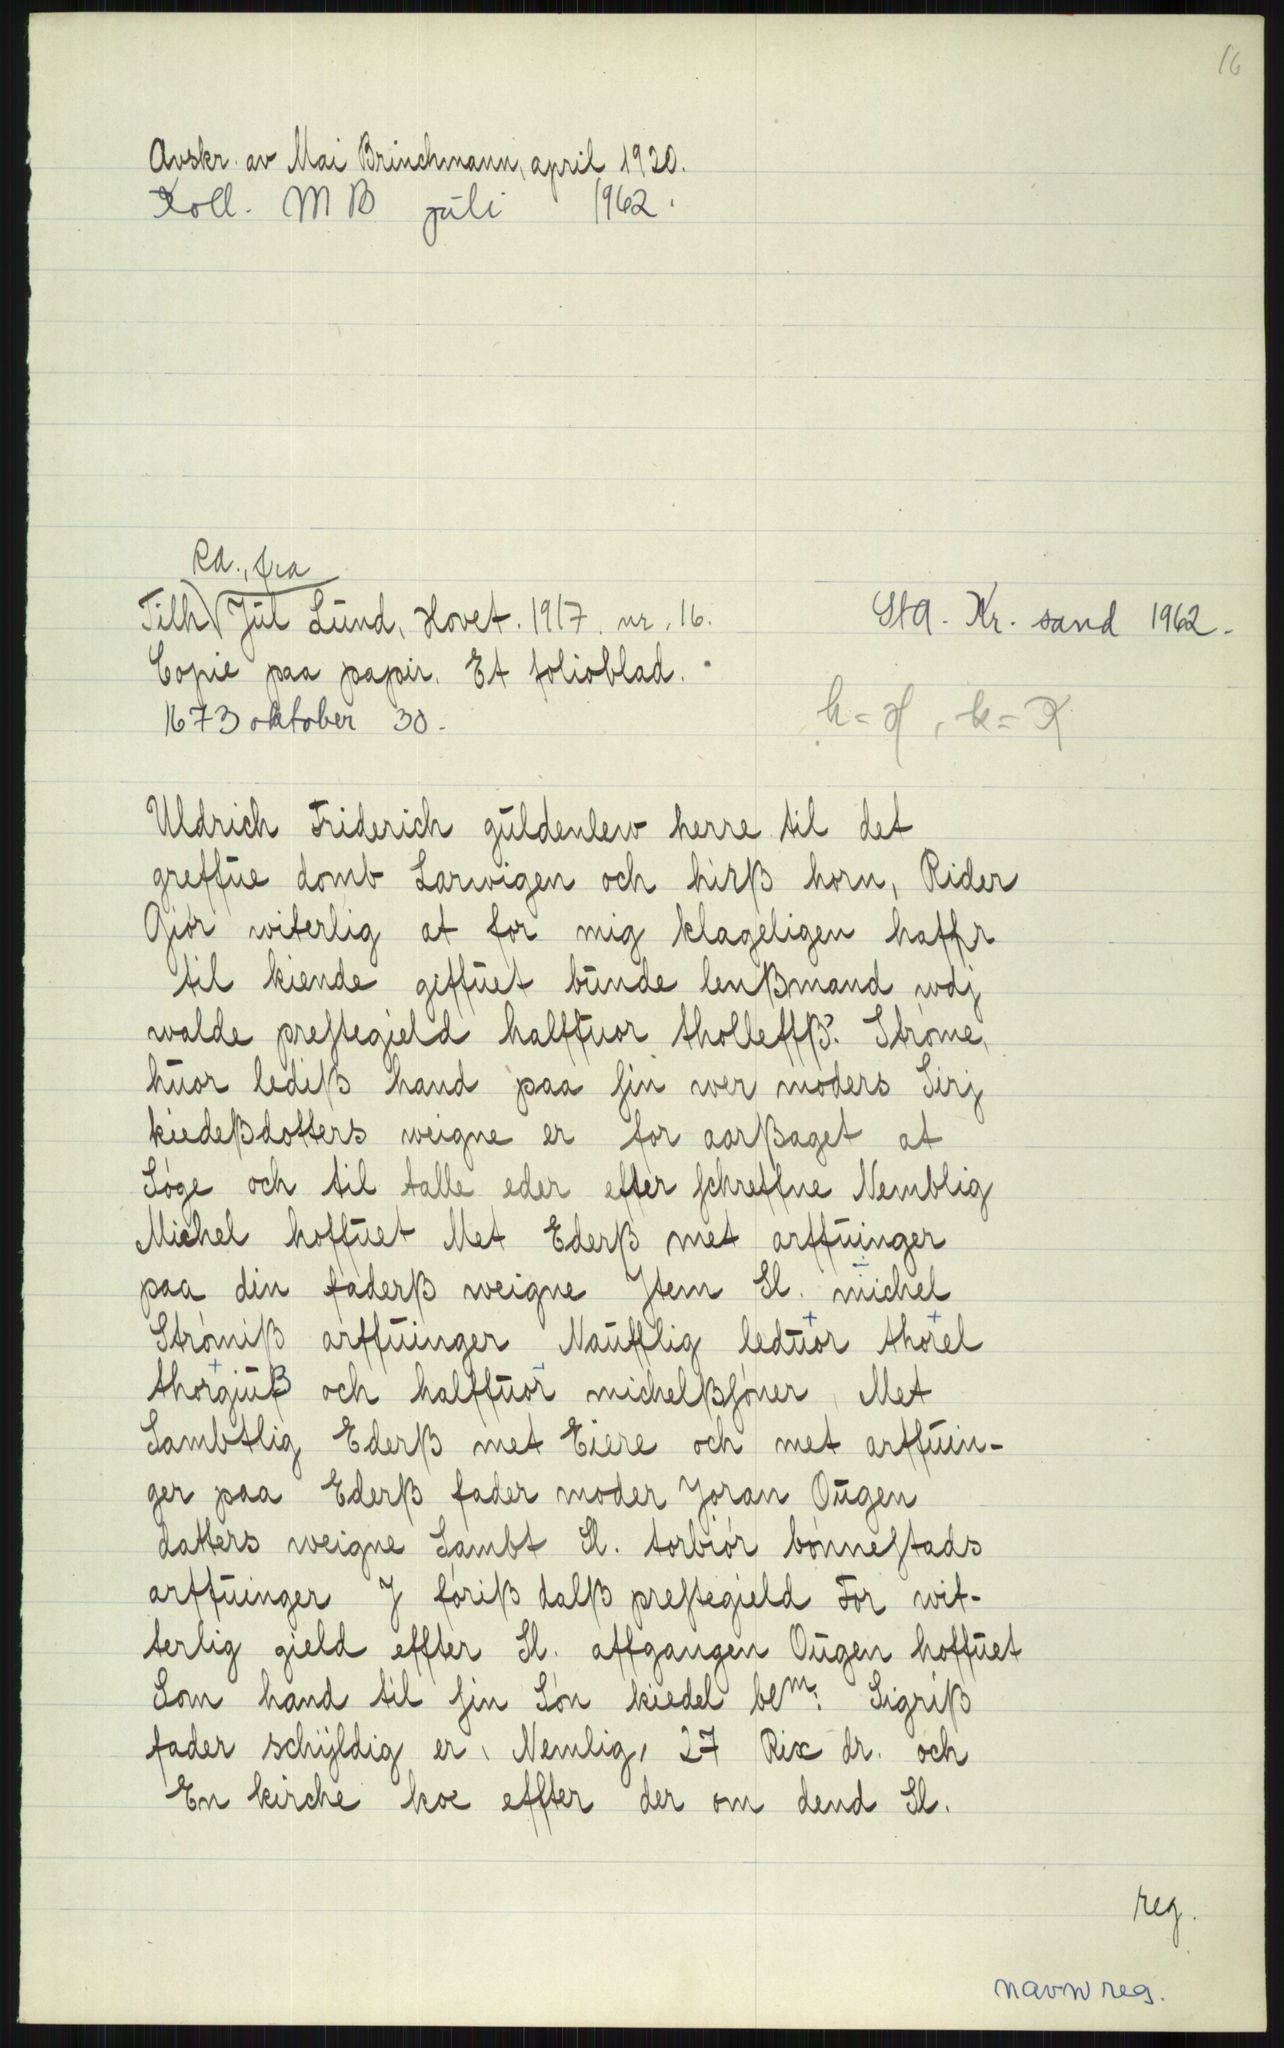 16
Avskr. av Mai Brinchmann, april 1920.
Koll. M B juli 1962.
Ra., fra
Tilh. Jul Lund, Hovet. 1917. nr. 16.
StA. Kr. sand 1962.
Copie paa papir. Et folioblad.
1673 oktober 30.
h = H, k = K
Uldrich Friderich güldenlew herre til det
greffüe domb Larwigen och hirß horn, Rider
Giör witerlig at for mig klageligen haffr
til kiende geffüet bünde lenßmand wdj
walde prestegield halffuor tholleffß: Ströme,
hüor lediß hand paa sin wer moders Sirj
kiedeßdotters weigne er for aarßaget at
Söge och til talle eder efter schreffne Nemblig
Michel hoffuet Met Ederß met arffüinger
paa din faderß weigne Jtem Sl. michel
Strömiß arffüinger Naufflig leduor thorel
thorgiuß och halffuor michelßsöner, Met
Sambtlig Ederß met Eiere och met arffüin-
ger paa Ederß fader moder Joran Oügen
datters weigne Sambt Sl. torbiör bönnestads
arffüinger J föriß dalß prestegield For wit-
terlig gield effter Sl. affgangen Oügen hoffuet
Som hand til sin Sön kiedel bem: Sigriß
fader schÿldig er, Nemlig, 27 Rix dr. och
En kirche koe effter der om dend Sl.
reg.
navnreg.